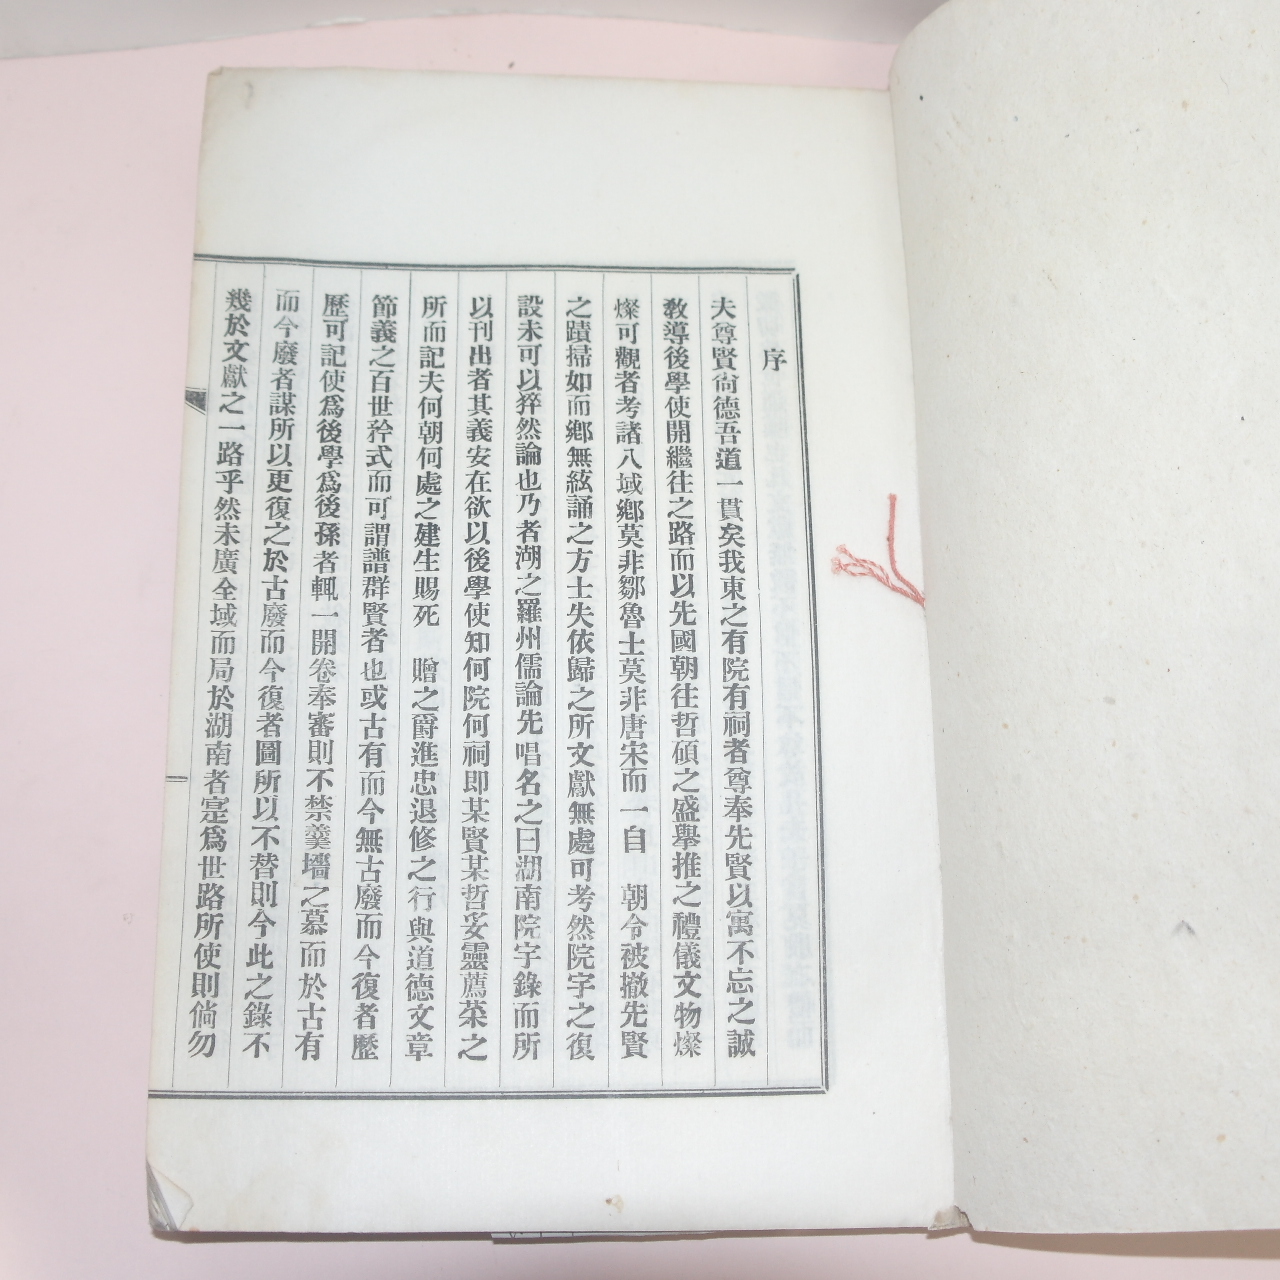 序
夫尊賢尙德吾道一貫矣我東之有院有祠者尊奉先賢以寓不忘之誠
敎導後學使開繼往之路而以先國朝往哲碩之盛擧推之禮儀文物燦
燦可觀者考諸八域鄕莫非鄒魯士莫非唐宋而一自 朝令被撤先賢
之蹟掃如而鄕無絃誦之方士失依歸之所文獻無處可考然院宇之復
設未可以猝然論也乃者湖之羅州儒論先唱名之曰湖南院宇錄而所
以刊出者其義安在欲以後學使知何院何祠即某賢某哲妥靈薦菜之
所而記夫何朝何處之建生賜死 贈之爵進忠退修之行與道德文章
節義之百世矜式而可謂譜群賢者也或古有而今無古廢而今復者歷
歷可記使爲後學爲後孫者輒一開卷奉審則不禁羹墻之慕而於古有
而今廢者謀所以更復之於古廢而今復者圖所以不替則今此之錄不
幾於文獻之一路乎然未廣全域而局於湖南者寔爲世路所使則倘勿